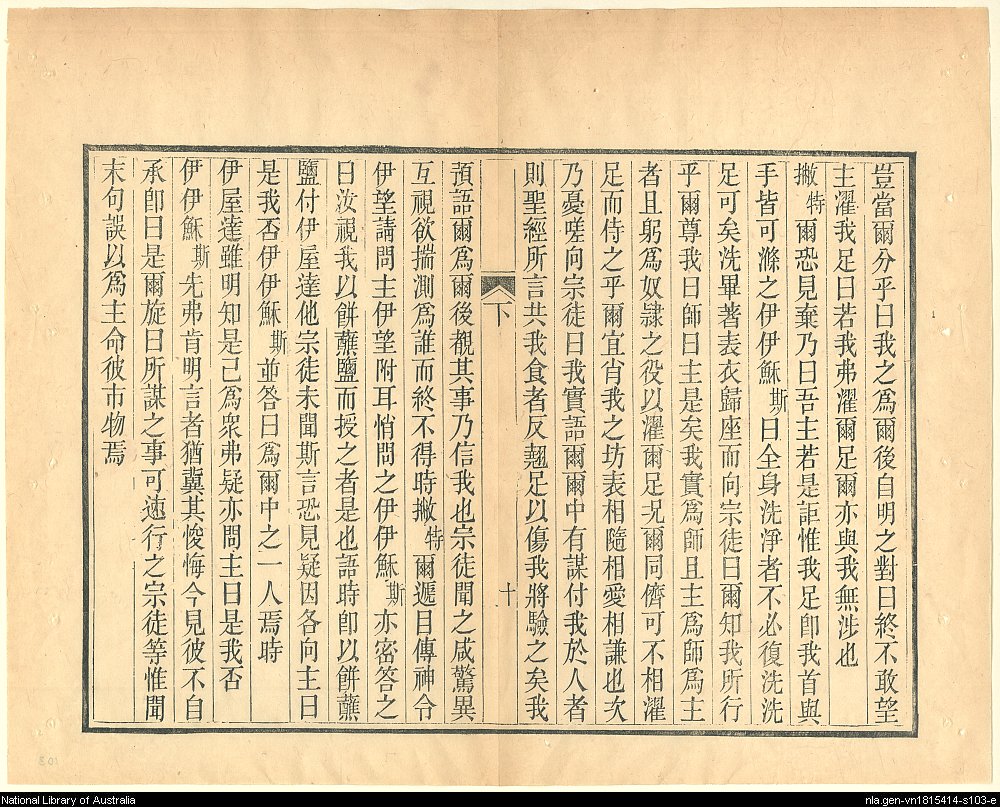 豈當爾分乎曰我之爲爾後自明之對曰終不敢望
主濯我足曰若我弗濯爾足爾亦與我無涉也
撇特爾恐見棄乃曰吾主若是詎惟我足卽我首與
手皆可滌之伊伊穌斯曰全身洗淨者不必復洗洗
足可矣洗畢著表衣歸座而向宗徒曰爾知我所行
乎爾尊我曰師曰主是矣我實爲師且主爲師爲主
者且躬爲奴隷之役以濯爾足況爾同儕可不相濯
足而侍之乎爾宜肖我之坊表相隨相愛相謙也次
乃憂嗟向宗徒曰我實語爾爾中有謀付我於人者
則聖經所言共我食者反翹足以傷我將驗之矣我
下
十
預語爾爲爾後覩其事乃信我也宗徒聞之咸驚異
互視欲揣測爲誰而終不得時撇特爾遞目傳神令
伊望請問主伊望附耳悄問之伊伊穌斯亦密答之
曰汝視我以餅蘸鹽而授之者是也語時卽以餅蘸
鹽付伊屋達他宗徒未聞斯言恐見疑因各向主曰
是我否伊伊穌斯並答曰爲爾中之一人焉時
伊屋達雖明知是己爲衆弗疑亦問主曰是我否
伊伊穌斯先弗肯明言者猶冀其悛悔今見彼不自
承卽曰是爾旋曰所謀之事可速行之宗徒等惟聞
末句誤以爲主命彼市物焉
National Library of Australia
nla.gen-vn1815414-s103-e